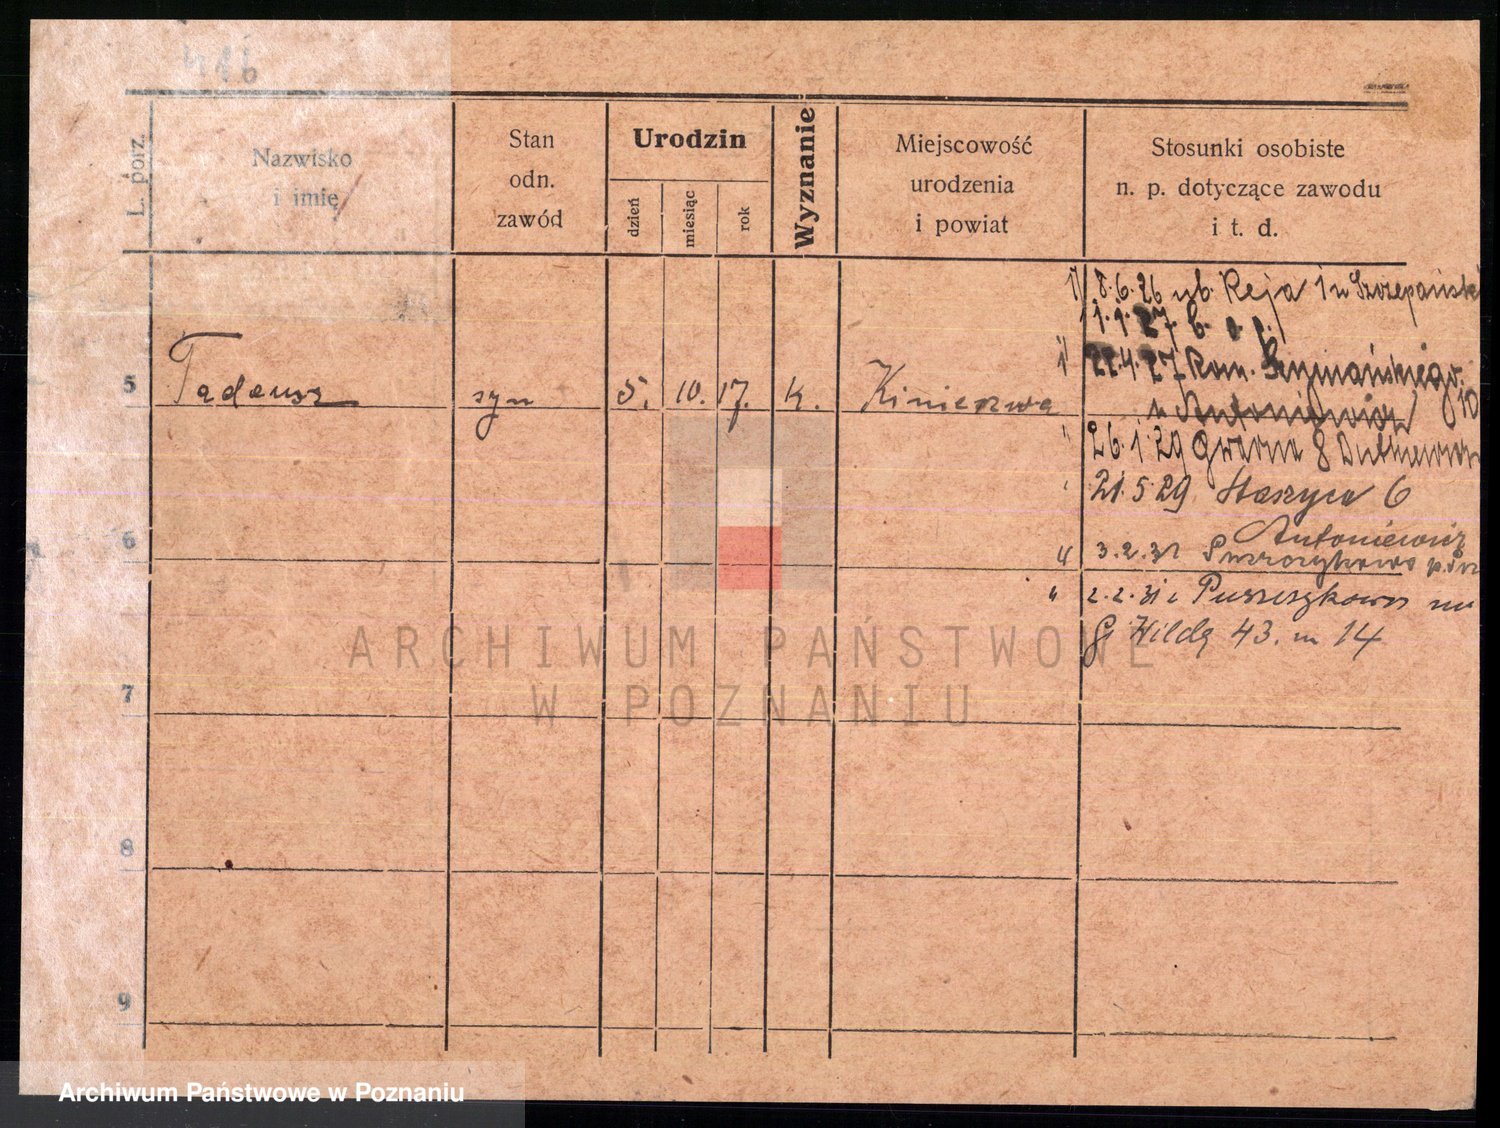 L. porz.
Nazwisko
i imię
Stan
odn.
zawód
Urodzin
dzień
miesiąc
rok
Wyznanie
Miejscowość
urodzenia
i powiat
Stosunki osobiste
n. p. dotyczące zawodu
i t. d.
8.6.26 ub. Reja 1 u Szczepańsk
1.1.27 b.
22.4.27 Rom. Szymańskiego 10
u Antoniewicz
5 Tadeusz syn 5. 10. 17. k.
26.1.29 Gwarna 8
21.5.29 Staszyca 6
Antoniewicz
6
3.2.31
2.2.31 z Puszczykowa na
G. Wildę 43. m 14
7
8
9
ARCHIWUM PAŃSTWOWE
W POZNANIU
Archiwum Państwowe w Poznaniu